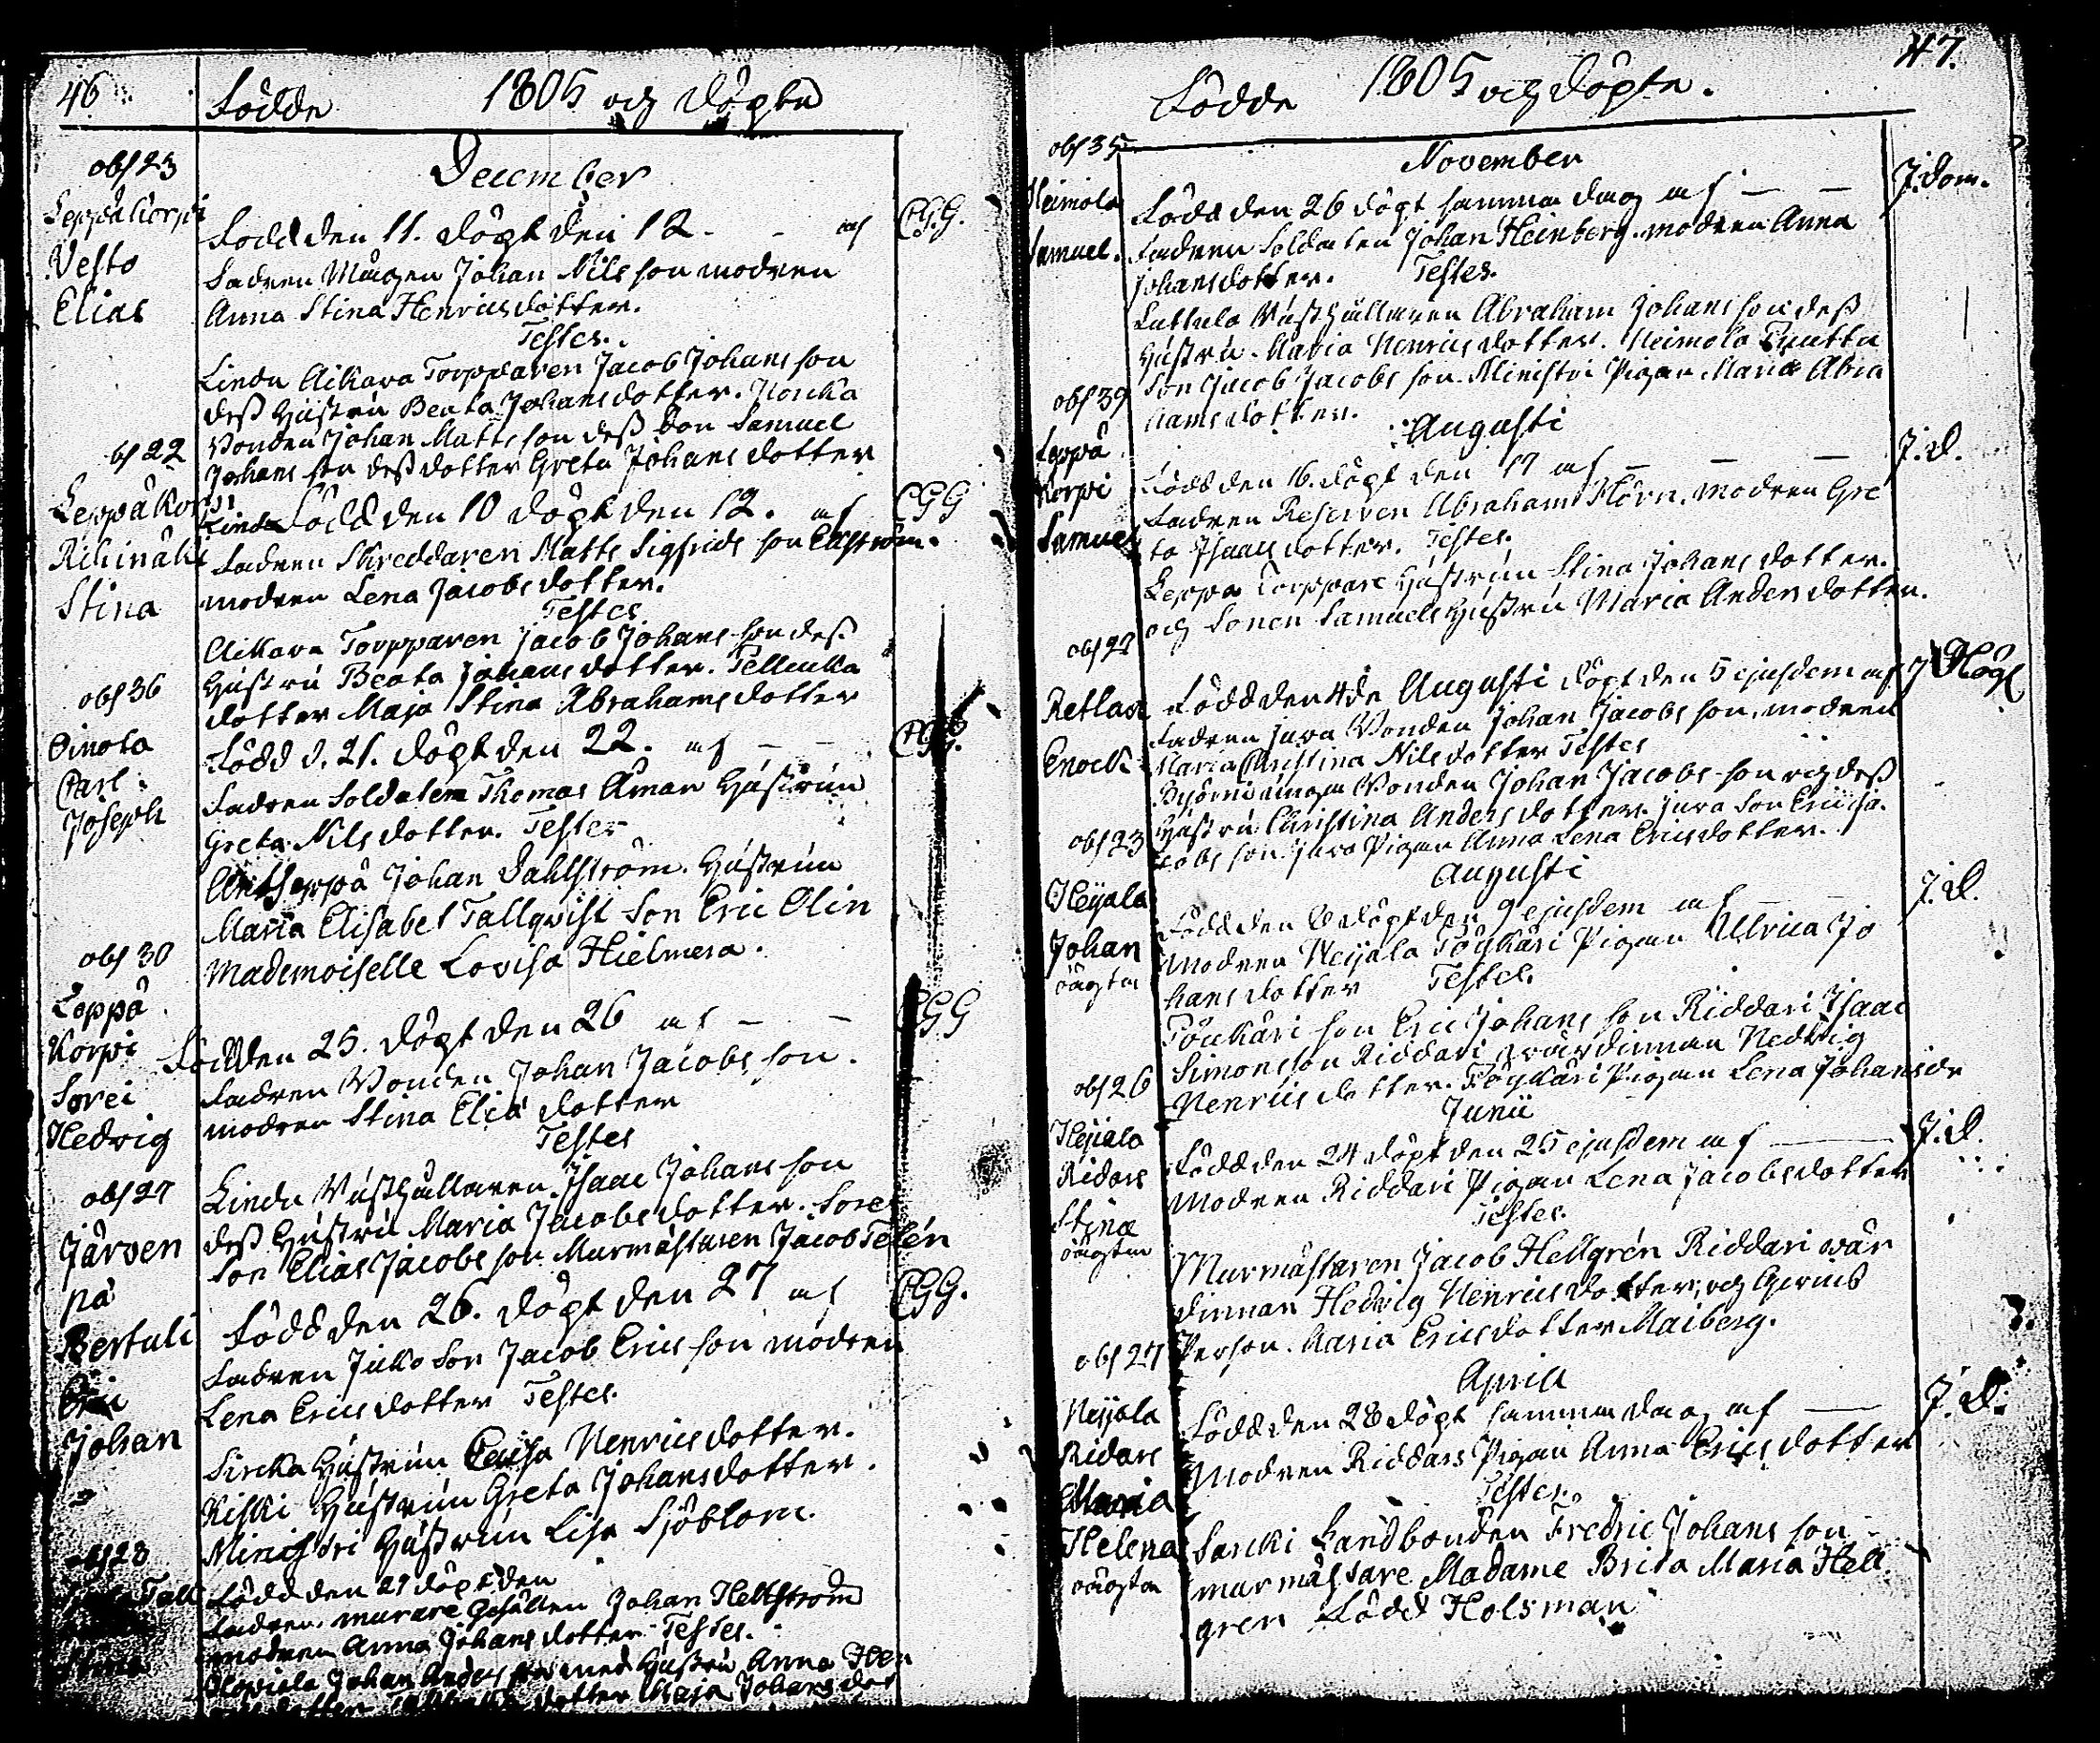 46.
Födde 1805 och döpte
December
obs 23
Leppäkorpi
Vesto
Elias
Född den 11. döpt den 12. af CGG.
Fadren Mågen Johan Nilsson modren
Anna Stina Henricsdotter.
Testes.
Lindu Aikava Torpparen Jacob Johansson
dess Hustru Beata Johansdotter.
Bonden Johan Mattsson dess Son Samuel
Johansson dess dotter Greta Johansdotter
obs 22
Leppäkorpi
Stina
Född den 10 döpt den 12. af CGG
Fadren Skreddaren Matts Sigfridsson
modren Lena Jacobsdotter.
Testes
Aikava Torpparen Jacob Johansson dess
Hustru Beata Johansdotter.
dotter Maja Stina Abrahamsdotter
obs 36
Oinola
Carl
Joseph
Född d. 21. döpt den 22. af CGG.
Fadren Soldaten Thomas Åman Hustrun
Greta Nilsdotter. Testes
Johan Dahlström. Hustrun
Maria Elisabet Tallqvist Son Eric Olin
Mademoiselle Lovisa Hielmera.
obs 30
Leppä
Korpi
Sorei
Hedvig
Född den 25. döpt den 26 af CGG
Fadren Bonden Johan Jacobsson.
modren Stina Eliædotter
Testes
Lindu Isaac Johansson
dess Hustru Maria Jacobsdotter. Sorei
Son Elias Jacobsson Murmästaren Jacob
obs 27
Järven
pä
Bertuli
Johan
Född den 26. döpt den 27 af CGG.
Fadren Juko Son Jacob Ericsson modren
Lena Ericsdotter Testes.
Hustrun Caisa Henricsdotter.
Kiski Hustrun Greta Johansdotter.
Ministri Hustrun Lisa Sjöblom.
Född den 27 döpt den
Fadren murare Gesällen Johan Hellström
modren Anna Johansdotter Testes.
Johan Andersson med Hustru Anna Hen
dotter Maja Johansdot
47.
Födde 1805 och döpte.
November
obs 35
Heimola
Samuel.
Född den 26 döpt samma dag af — — J. dom.
Fadren Soldaten Johan Heinberg. modren Anna
Johansdotter. Testes.
Abraham Johansson dess
Hustru. Maria Henricsdotter. Heimola
Son Jacob Jacobsson. Ministri Pigan Maria Abra
hamsdotter.
Augusti
obs 39
Leppä
Korpi
Samuel
Född den 16. döpt den 17 af — — — J. D.
Fadren Reserven Abraham Hörn. modren Gre
ta Isaacsdotter. Testes.
Leppä Torppare Hustrun Stina Johansdotter.
och Sonen Samuels Hustru Maria Andersdotter.
obs 27
Enock
Född den 4de Augusti döpt den 5 ejusdem af J Hög
Fadren Juva Bonden Johan Jacobsson, modren
Maria Christina Nilsdotter Testes
Bonden Johan Jacobsson och dess
Hustru Christina Andersdotter. Juva Son Eric Ja
cobsson. Juva Pigan Anna Lena Ericsdotter.
Augusti
obs 23
Heijala
Johan
oägta
Född den 8 döpt den 9 ejusdem af — — J. D.
Modren Heijala Pigan Ulrica Jo
hansdotter Testes.
son Eric Johansson Riddari Isaac
Simonsson Riddari värdinnan Hedvig
Henricsdotter. Pigan Lena Johansdr
Junii
obs 26
Heijala
Ridars
Stina
oägta
Född den 24 döpt den 25 ejusdem af — J. D.
Modren Riddari Pigan Lena Jacobsdotter
Testes.
Murmästaren Jacob Hellgrén Riddari vär
dinnan Hedvig Henricsdotter, och
Person. Maria Ericsdotter Maiberg.
April
obs 27
Heijala
Ridars
Maria
Helena
oägta
Född den 28 döpt samma dag af — J. D.
Modren Riddars Pigan Anna Ericsdotter
Testes.
Sarcki Landbonden Fredric Johansson
murmästare Madame Brita Maria Hell
gren Född Holsman